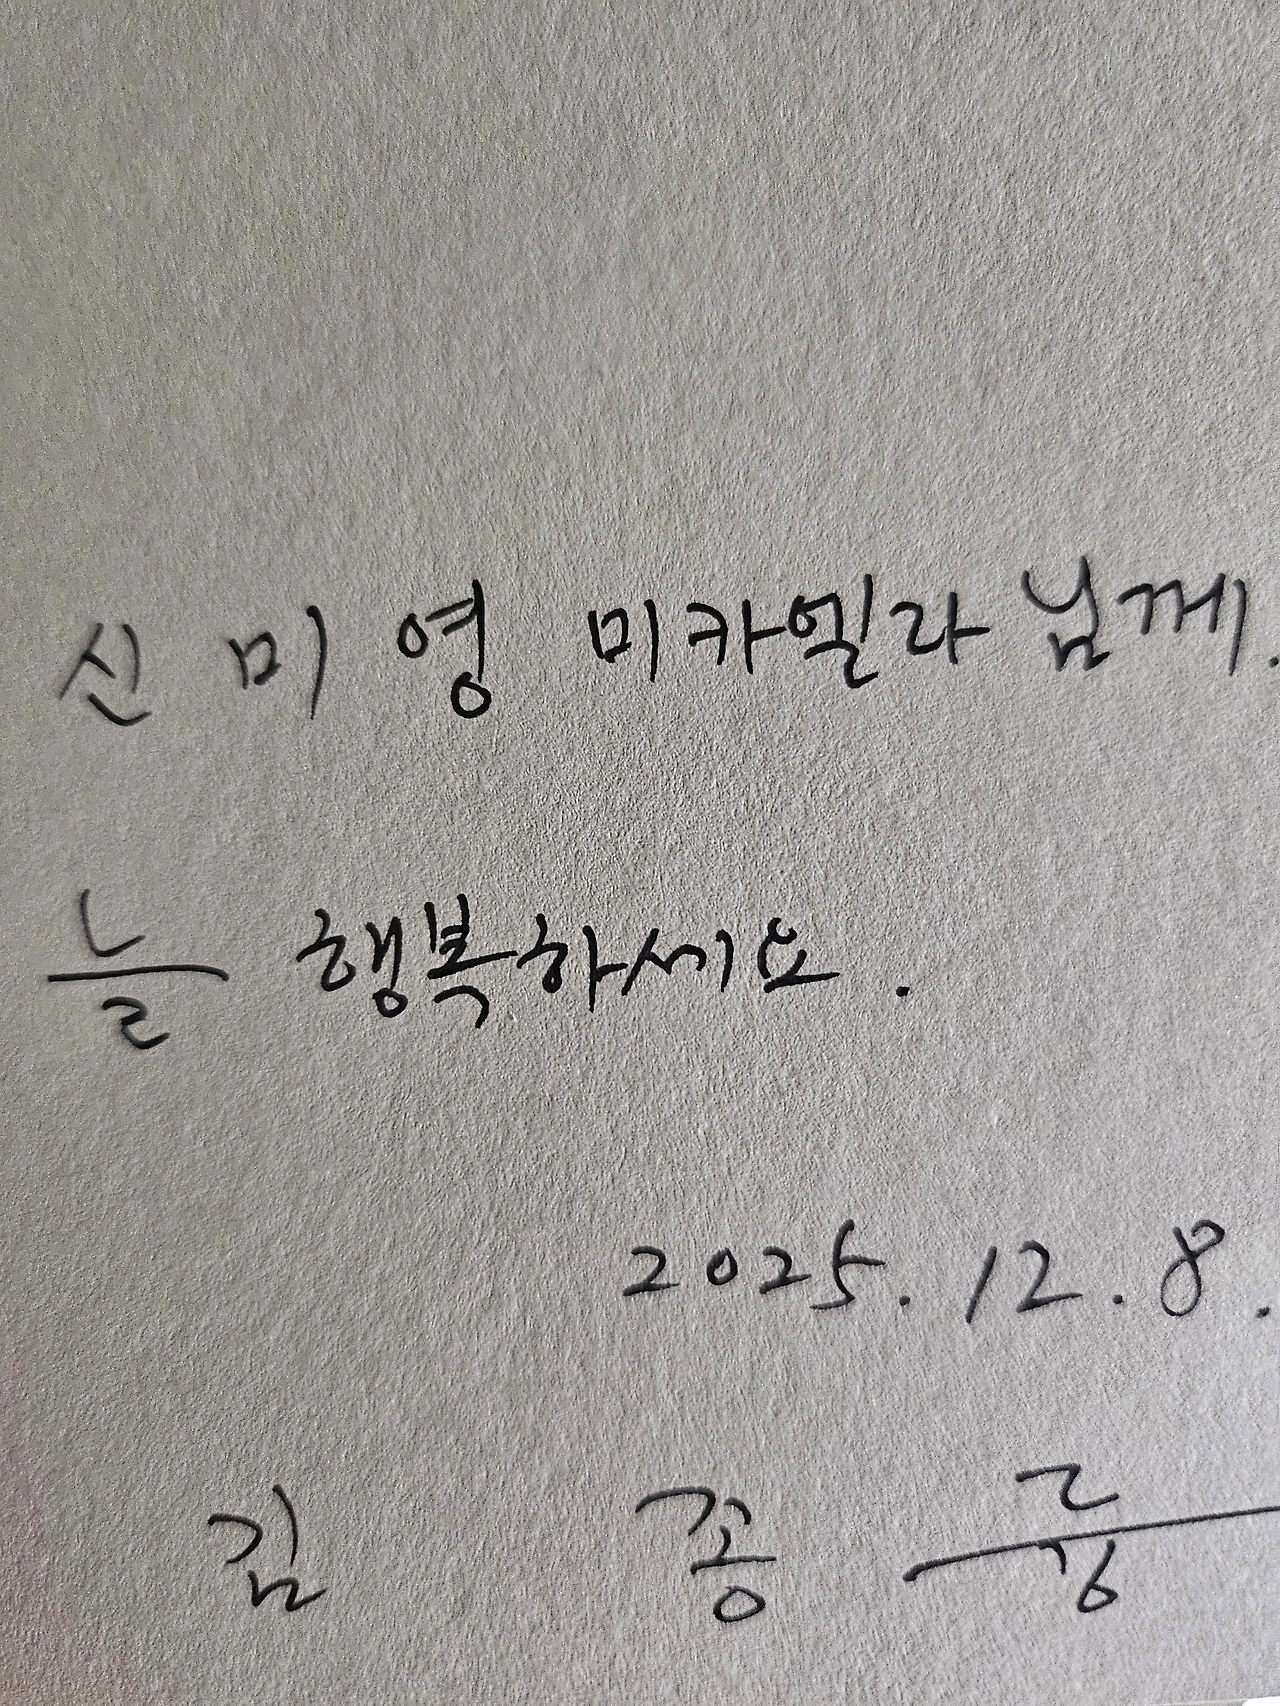 신미영 미카엘라 님께.
늘 행복하세요.
2025.12.8.
김종륭